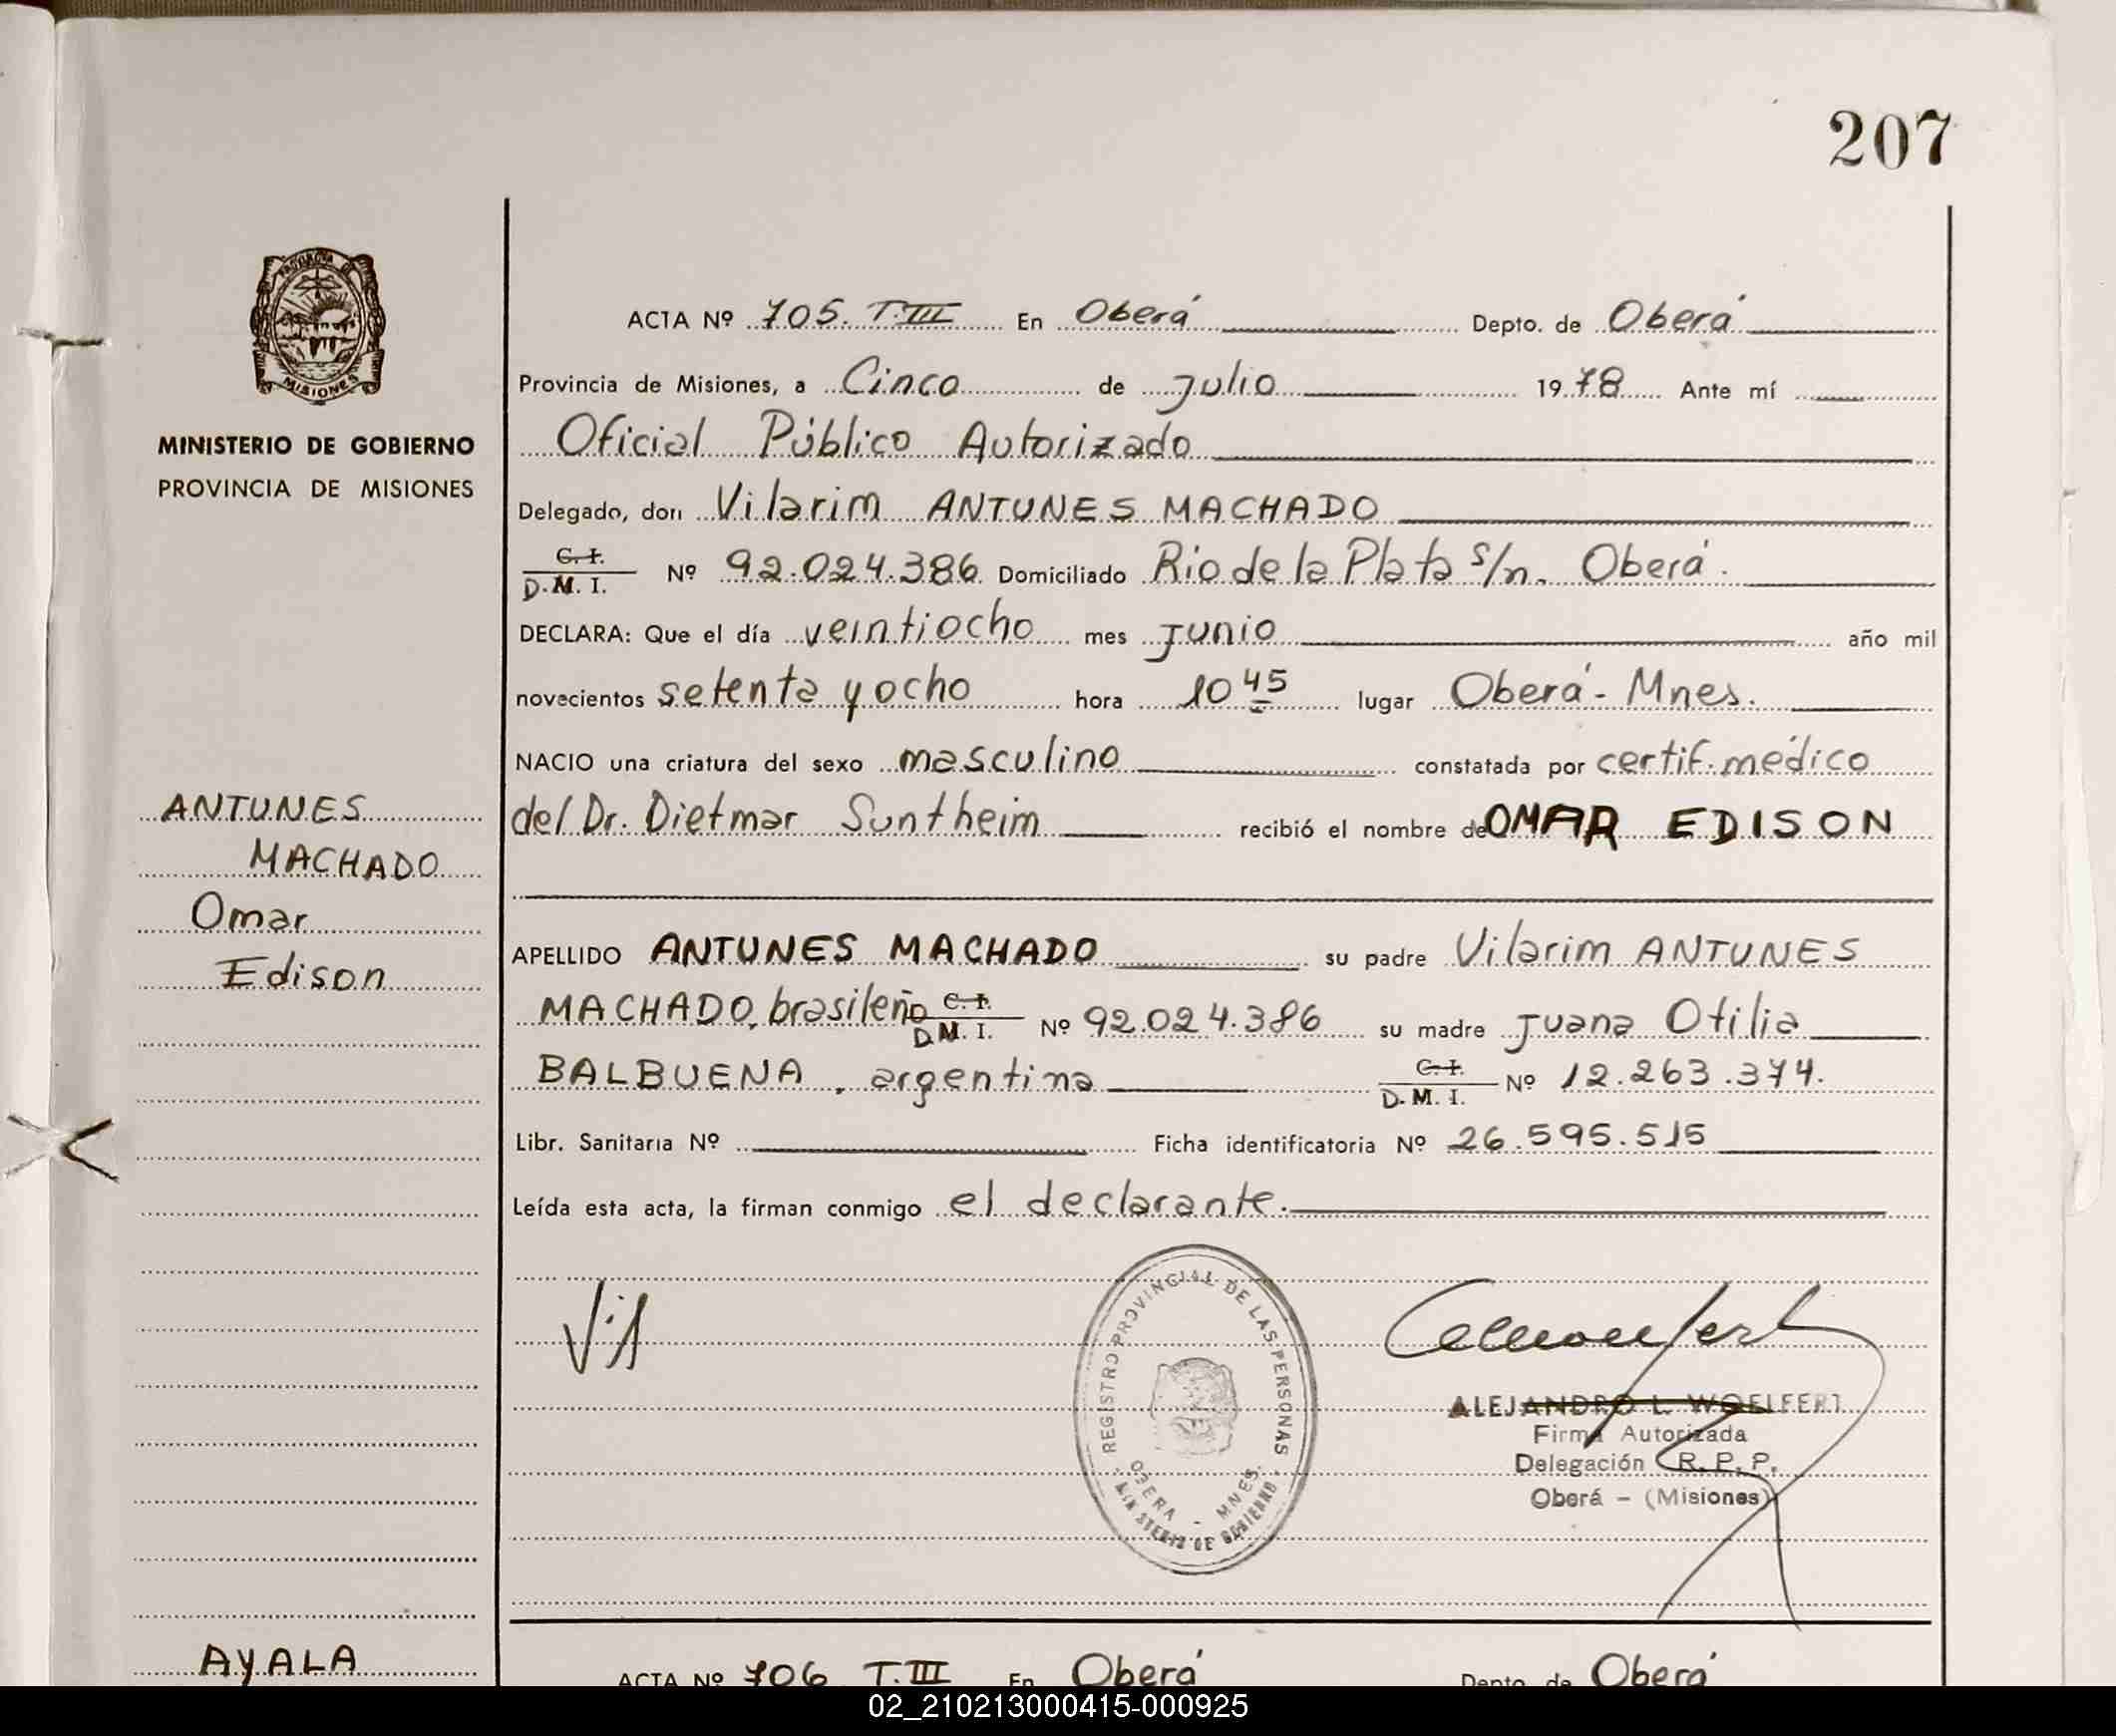 207
PROVINCIA DE
MISIONES
MINISTERIO DE GOBIERNO
PROVINCIA DE MISIONES
ANTUNES
MACHADO
Omar
Edison
ACTA Nº 705. T.III En Oberá Depto. de Oberá
Provincia de Misiones, a Cinco de Julio 1978 Ante mí
Oficial Público Autorizado
Delegado, don Vilarim ANTUNES MACHADO
C. I.
D. M. I. Nº 92.024.386 Domiciliado Rio de la Plata s/n. Oberá.
DECLARA: Que el día veintiocho mes Junio año mil
novecientos setenta y ocho hora 10 45 lugar Oberá - Mnes.
NACIO una criatura del sexo masculino constatada por certif. médico
del Dr. Dietmar Suntheim recibió el nombre de OMAR EDISON
APELLIDO ANTUNES MACHADO su padre Vilarim ANTUNES
MACHADO, brasileño C. I.
D. M. I. Nº 92.024.386 su madre Juana Otilia
BALBUENA, argentina C. I.
D. M. I. Nº 12.263.374.
Libr. Sanitaria Nº Ficha identificatoria Nº 26.595.515
Leída esta acta, la firman conmigo el declarante.
REGISTRO PROVINCIAL DE LAS PERSONAS
OBERA - MNES.
MINISTERIO DE GOBIERNO
ALEJANDRO L. WOELFERT
Firma Autorizada
Delegación R. P. P.
Oberá - (Misiones)
AYALA
ACTA Nº 706 T.III En Oberá Depto. de Oberá
02_210213000415-000925